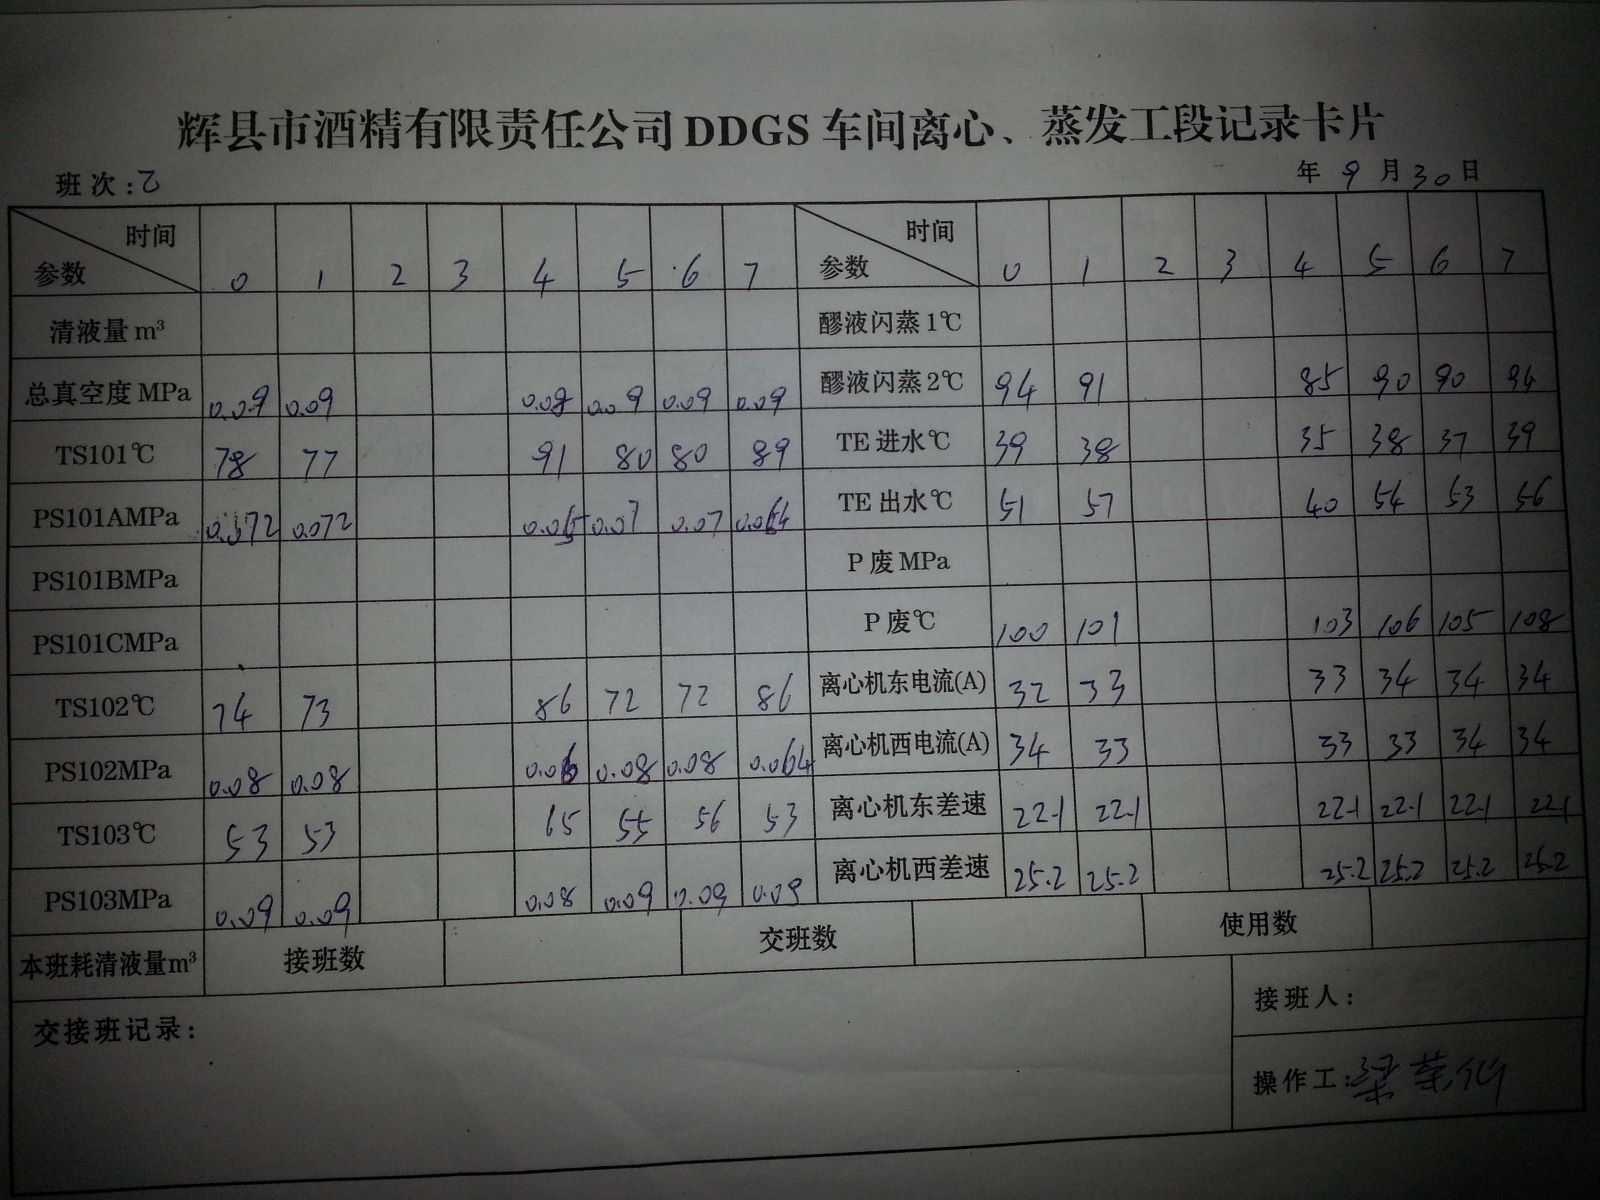 辉县市酒精有限责任公司DDGS车间离心、蒸发工段记录卡片
班次:乙 年 9 月 30 日
时间 参数 0 1 2 3 4 5 6 7 时间 参数 0 1 2 3 4 5 6 7
清液量m³ 醪液闪蒸1℃
总真空度MPa 0.09 0.09 0.08 0.09 0.09 0.09 醪液闪蒸2℃ 94 91 85 90 90 94
TS101℃ 78 77 91 80 80 89 TE进水℃ 39 38 35 38 37 39
PS101AMPa 0.072 0.065 0.07 0.07 0.064 TE出水℃ 51 57 40 54 53 56
PS101BMPa P废MPa
PS101CMPa P废℃ 100 101 103 106 105 108
TS102℃ 74 73 86 72 72 86 离心机东电流(A) 32 33 33 34 34 34
PS102MPa 0.08 0.08 0.06 0.08 0.08 0.064 离心机西电流(A) 34 33 33 33 34 34
TS103℃ 53 53 65 55 56 53 离心机东差速 22.1 22.1 22.1 22.1 22.1 22.1
PS103MPa 0.09 0.09 0.08 0.09 0.09 0.09 离心机西差速 25.2 25.2 25.2 25.2 25.2 25.2
本班耗清液量m³ 接班数 交班数 使用数
交接班记录:
接班人:
操作工:梁